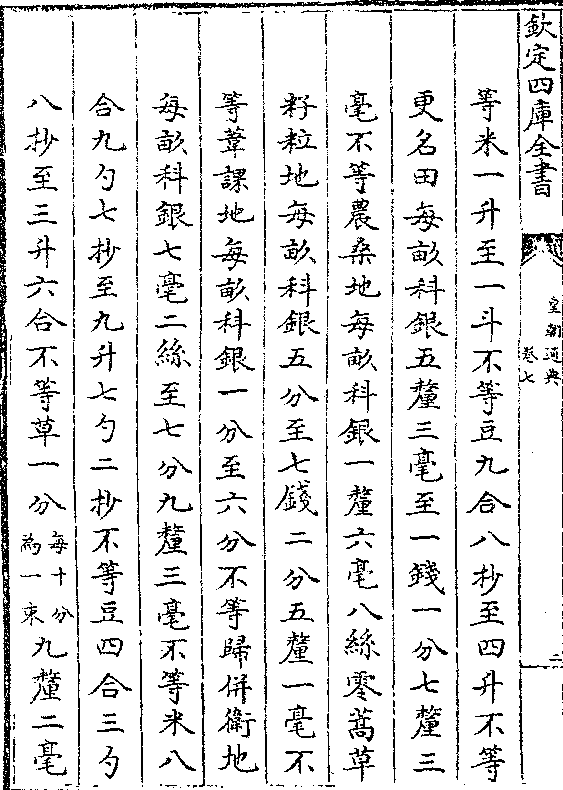 欽定四庫全書
皇朝通典
卷七
二
等米一升至一斗不等豆九合八抄至四升不等
更名田每畝科銀五釐三毫至一錢一分七釐三
毫不等農桑地每畝科銀一釐六毫八絲零蒿草
籽粒地每畝科銀五分至七錢二分五釐一毫不
等葦課地每畝科銀一分至六分不等歸併衛地
每畝科銀七毫二絲至七分九釐三毫不等米八
合九勺七抄至九升七勺二抄不等豆四合三勺
八抄至三升六合不等草一分每十分為一束九釐二毫